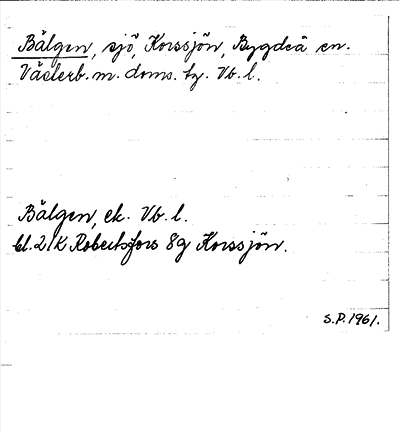 Bälgen, sjö, Korssjön, Bygdeå sn.
Västerb. m. doms. tg. Vb. l.
Bälgen, ek. Vb. l.
bl. 21K Robertsfors 8g Korssjön.
S.P. 1961.